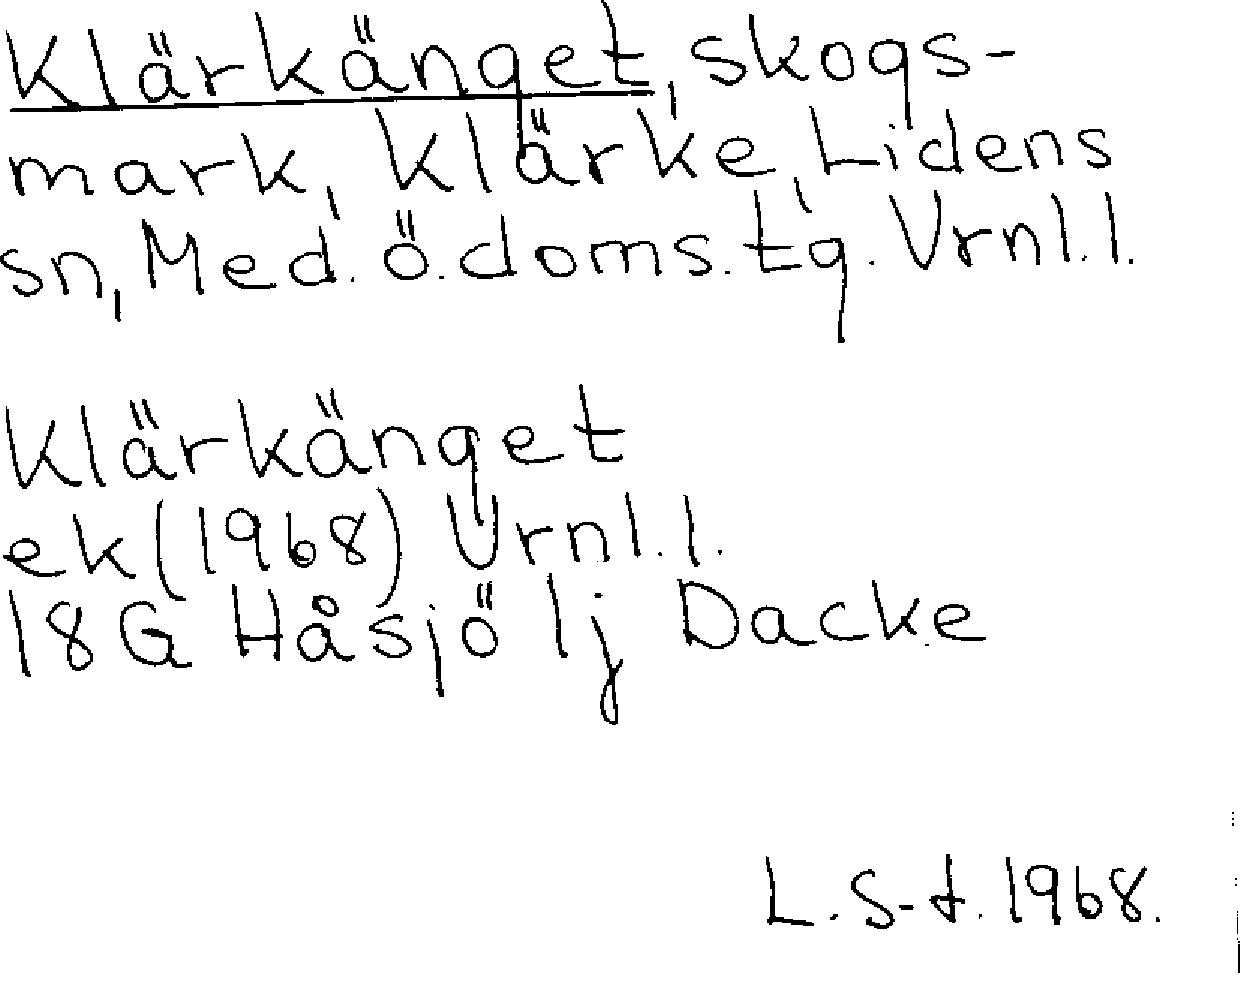 Klärkänget, skogs-
mark, Klärke, Lidens
sn, Med. ö. doms. tg. Vrnl. l.
Klärkänget
ek (1968) Vrnl. l.
18G Håsjö 1j Dacke
L. S-d. 1968.